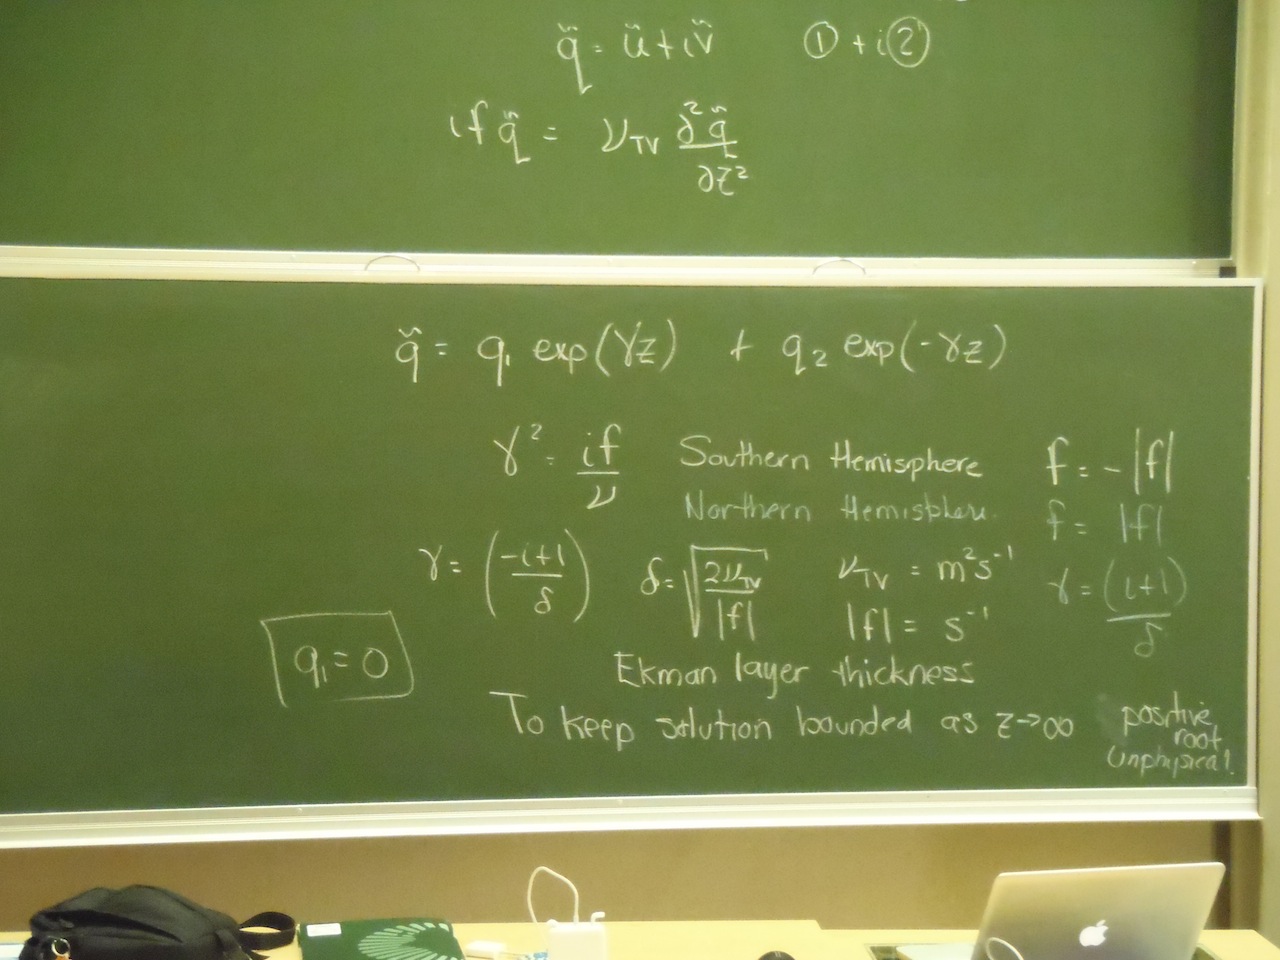 q̌ = ǔ + iv̌ ① + i②
if q̌ = ν_TV ∂²q̌/∂z²
q̌ = q₁ exp(γz) + q₂ exp(-γz)
γ² = if/ν Southern Hemisphere f = -|f|
Northern Hemisphere. f = |f|
γ = ((-i+1)/δ) δ = √(2ν_TV/|f|) ν_TV = m²s⁻¹ γ = (i+1)/δ
|f| = s⁻¹
q₁ = 0 Ekman layer thickness
To keep solution bounded as z→∞ positive root unphysical.